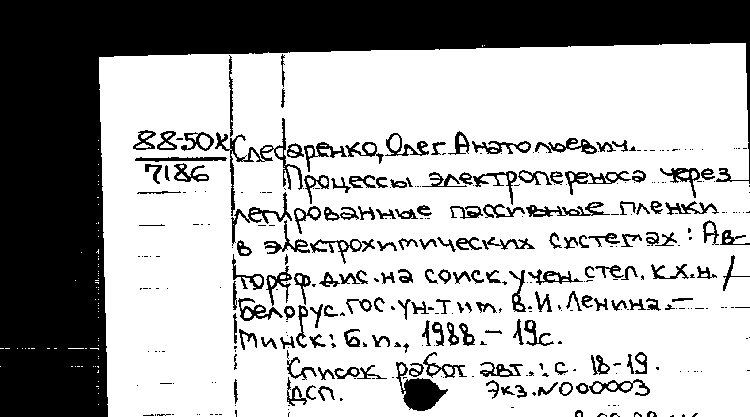 88-50К Слесаренко, Олег Анатольевич.
7186 Процессы электропереноса через
легированные пассивные пленки
в электрохимических системах: Ав-
тореф. дис. на соиск. учен. степ. к.х.н. /
Белорус. гос. ун-т им. В.И. Ленина. —
Минск: Б.и., 1988. — 19с.
Список работ авт.: с. 18-19.
ДСП. Экз. N000003